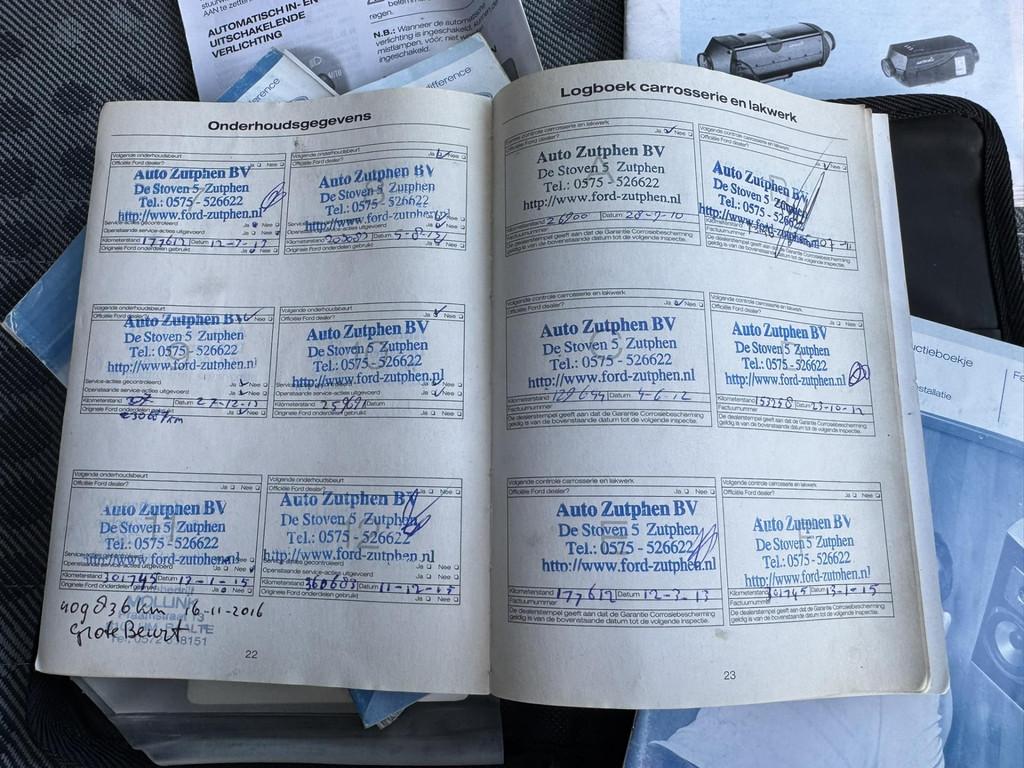 AAN te zetten
AUTOMATISCH IN- EN
UITSCHAKELENDE
VERLICHTING
regen.
N.B.: Wanneer de automatische
verlichting is ingeschakeld,
mistlampen, vóór,
ingeschakeld.
difference
Onderhoudsgegevens
Volgende onderhoudsbeurt
Officiële Ford dealer? Ja Nee
Auto Zutphen BV
De Stoven 5 Zutphen
Tel.: 0575 - 526622
http://www.ford-zutphen.nl
Service-acties gecontroleerd
Openstaande service-acties uitgevoerd
Kilometerstand 177612 Datum
Originele Ford onderdelen gebruikt Ja Nee
Volgende onderhoudsbeurt
Officiële Ford dealer? Ja Nee
Auto Zutphen BV
De Stoven 5 Zutphen
Tel.: 0575 - 526622
http://www.ford-zutphen.nl
Openstaande service-acties uitgevoerd
Kilometerstand Datum 5-8-13
Originele Ford onderdelen gebruikt Ja Nee
Volgende onderhoudsbeurt
Officiële Ford dealer? Nee
Auto Zutphen BV
De Stoven 5 Zutphen
Tel.: 0575 - 526622
http://www.ford-zutphen.nl
Service-acties gecontroleerd Ja Nee
Openstaande service-acties uitgevoerd Ja Nee
Kilometerstand Datum 27-12-13
Originele Ford onderdelen gebruikt Ja Nee
Volgende onderhoudsbeurt
Officiële Ford dealer? Ja Nee
Auto Zutphen BV
De Stoven 5 Zutphen
Tel.: 0575 - 526622
http://www.ford-zutphen.nl
Openstaande service-acties uitgevoerd Ja Nee
Kilometerstand Datum
Originele Ford onderdelen gebruikt Ja Nee
Volgende onderhoudsbeurt
Officiële Ford dealer? Ja Nee
Auto Zutphen BV
De Stoven 5 Zutphen
Tel.: 0575 - 526622
http://www.ford-zutphen.nl
Openstaande service-acties uitgevoerd
Kilometerstand 301745 Datum 12-1-15
Originele Ford onderdelen gebruikt Ja Nee
Volgende onderhoudsbeurt
Officiële Ford dealer? Ja Nee
Auto Zutphen BV
De Stoven 5 Zutphen
Tel.: 0575 - 526622
http://www.ford-zutphen.nl
Openstaande service-acties uitgevoerd
Kilometerstand 360683 Datum 11-12-15
Originele Ford onderdelen gebruikt Ja Nee
km 16-11-2016
Grote Beurt
22
Logboek carrosserie en lakwerk
Volgende controle carrosserie en lakwerk
Officiële Ford dealer? Ja Nee
Auto Zutphen BV
De Stoven 5 Zutphen
Tel.: 0575 - 526622
http://www.ford-zutphen.nl
Kilometerstand 26900 Datum 28-9-10
Factuurnummer
De dealerstempel geeft aan dat de Garantie Corrosiebescherming
geldig is van de bovenstaande datum tot de volgende inspectie.
Volgende controle carrosserie en lakwerk
Officiële Ford dealer? Nee
Auto Zutphen BV
De Stoven 5 Zutphen
Tel.: 0575 - 526622
http://www.ford-zutphen.nl
Factuurnummer
De dealerstempel geeft aan dat de Garantie Corrosiebescherming
geldig is van de bovenstaande datum tot de volgende inspectie.
Volgende controle carrosserie en lakwerk
Officiële Ford dealer? Ja Nee
Auto Zutphen BV
De Stoven 5 Zutphen
Tel.: 0575 - 526622
http://www.ford-zutphen.nl
Kilometerstand Datum 4-6-12
Factuurnummer
De dealerstempel geeft aan dat de Garantie Corrosiebescherming
geldig is van de bovenstaande datum tot de volgende inspectie.
Volgende controle carrosserie en lakwerk
Officiële Ford dealer? Ja Nee
Auto Zutphen BV
De Stoven 5 Zutphen
Tel.: 0575 - 526622
http://www.ford-zutphen.nl
Kilometerstand Datum 23-10-12
Factuurnummer
De dealerstempel geeft aan dat de Garantie Corrosiebescherming
geldig is van de bovenstaande datum tot de volgende inspectie.
Volgende controle carrosserie en lakwerk
Officiële Ford dealer? Ja Nee
Auto Zutphen BV
De Stoven 5 Zutphen
Tel.: 0575 - 526622
http://www.ford-zutphen.nl
Kilometerstand 177612 Datum 12-3-13
Factuurnummer
De dealerstempel geeft aan dat de Garantie Corrosiebescherming
geldig is van de bovenstaande datum tot de volgende inspectie.
Volgende controle carrosserie en lakwerk
Officiële Ford dealer? Ja Nee
Auto Zutphen BV
De Stoven 5 Zutphen
Tel.: 0575 - 526622
http://www.ford-zutphen.nl
Kilometerstand 301745 Datum 13-1-15
Factuurnummer
De dealerstempel geeft aan dat de Garantie Corrosiebescherming
geldig is van de bovenstaande datum tot de volgende inspectie.
23
uctieboekje
stallatie